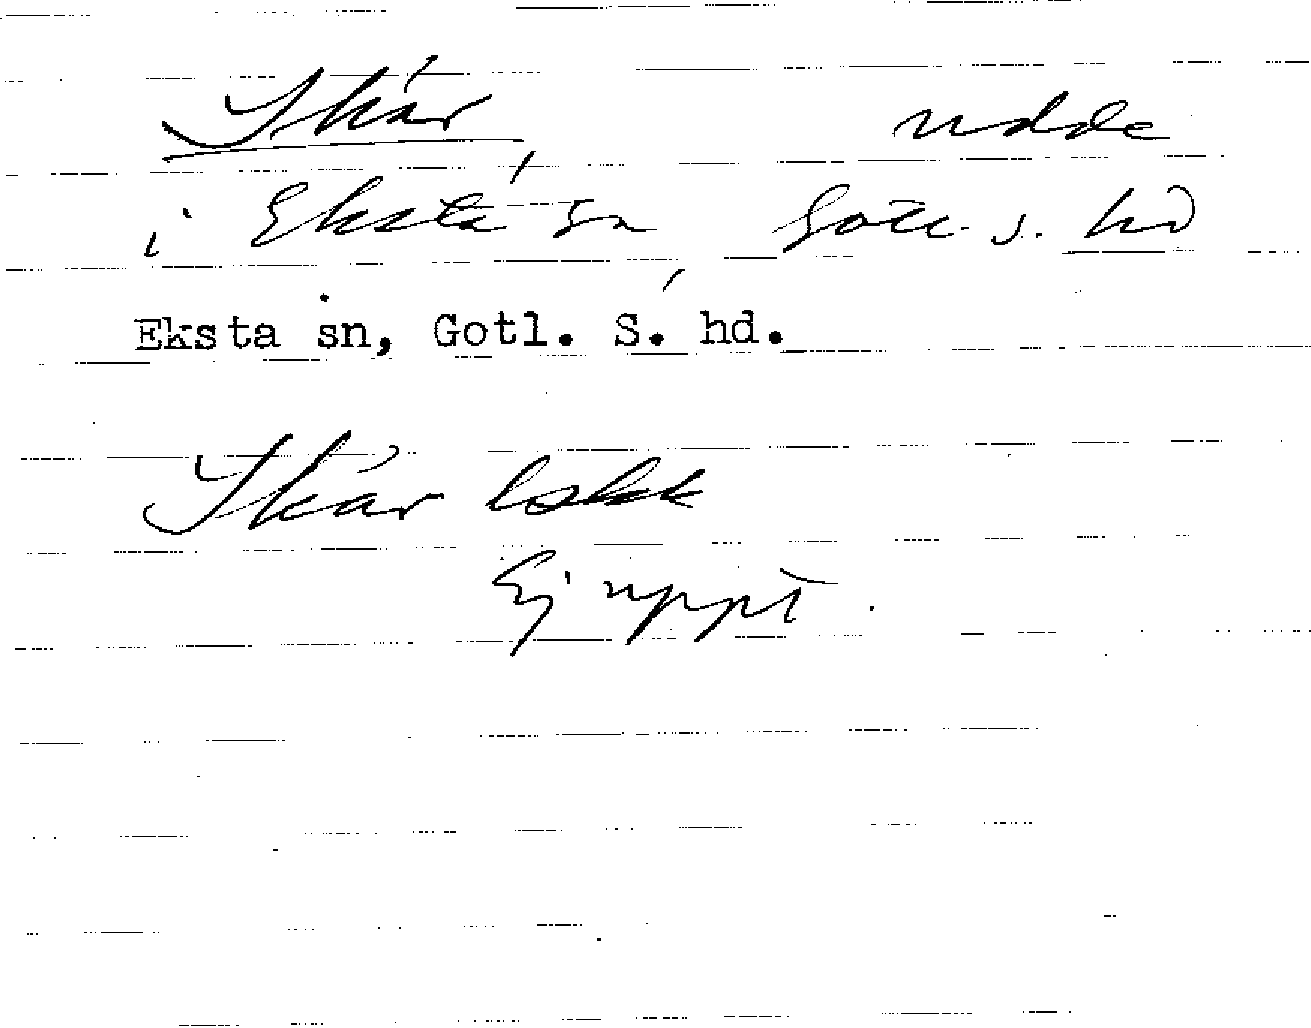 Skär, udde
i Eksta sn Gotl. s. hd
Eksta sn, Gotl. S. hd.
Skär
Ej uppt.